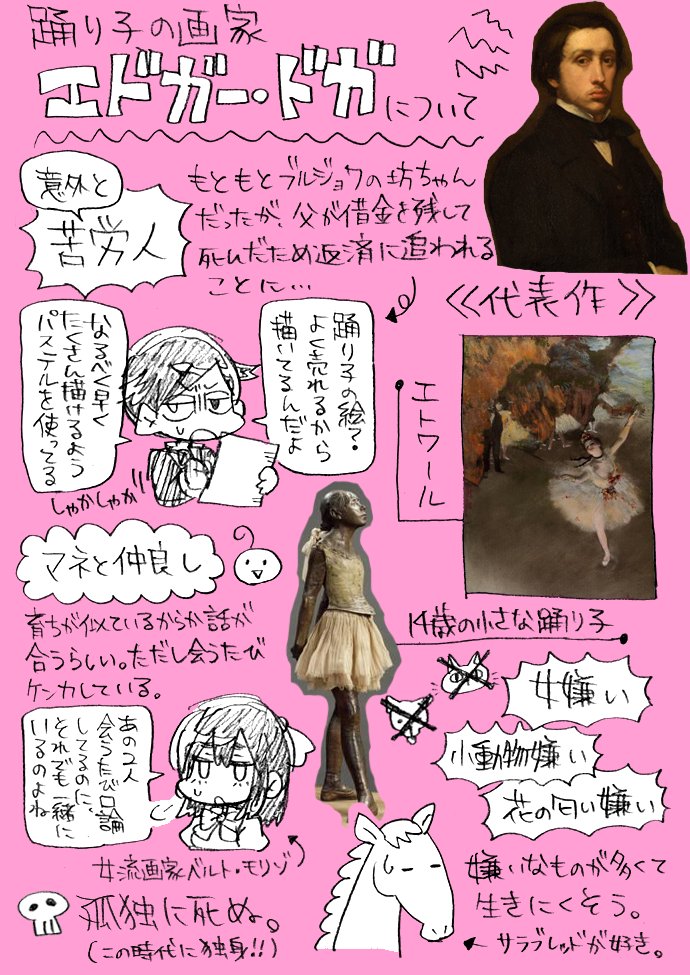 踊り子の画家
エドガー・ドガについて
意外と
苦労人
もともとブルジョワの坊ちゃん
だったが、父が借金を残して
死んだため返済に追われる
ことに…
《代表作》
踊り子の絵?
よく売れるから
描いてるんだよ
なるべく早く
たくさん描けるよう
パステルを使ってる
しゃかしゃか
エトワール
マネと仲良し
育ちが似ているからか話が
合うらしい。ただし会うたび
ケンカしている。
14歳の小さな踊り子
女嫌い
小動物嫌い
花の匂い嫌い
あの2人
会うたび口論
してるのに、
それでも一緒に
いるのよね
女流画家ベルト・モリゾ
嫌いなものが多くて
生きにくそう。
サラブレッドが好き。
孤独に死ぬ。
(この時代に独身!!)